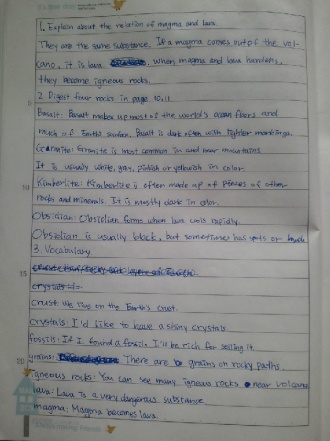 1. Explain about the relation of magma and lava.
They are the same substance. If a magma comes out of the vol-
cano, it is lava when magma and lava hardens,
they become igneous rocks.
2. Digest four rocks in page 10, 11
Basalt: Basalt makes up most of the world's ocean floors and
much of Earth's surface. Basalt is dark often with lighter markings.
Granite: Granite is most common in and near mountains
It is usually white, gray, pinkish or yellowish in color.
10
Kimberlite: Kimberlite is often made up of pieces of other
rocks and minerals. It is mostly dark in color.
Obsidian: Obsidian forms when lava cools rapidly.
Obsidian is usually black, but sometimes has spots or
3. Vocabulary
15
crystals
crust: We live on the Earth's crust.
crystals: I'd like to have a shiny crystals.
fossils: If I found a fossil, I'll be rich for selling it.
grains: There are grains on rocky paths.
20
igneous rocks: You can see many igneous rocks near volcano
lava: Lava is a very dangerous substance
magma: Magma becomes lava.